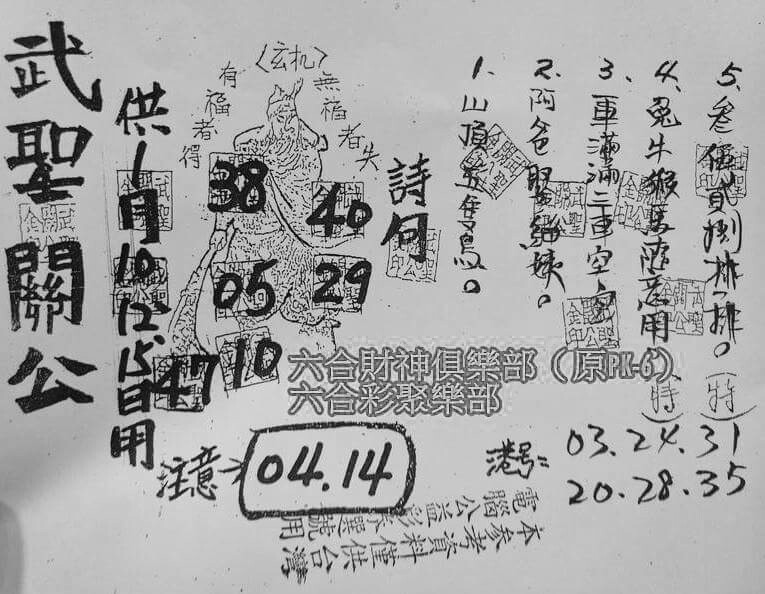 武聖關公
供1月10.12.15日用
〈玄机〉
有福者得
無福者失
38
40
05
29
10
47
詩句
1、山頂五隻鳥。
2、阿爸娶細姨。
3、車滿滿二車空空
4、兔牛猴馬隨意用（特）
5、叁伍貳捌排一排。（特）
六合財神俱樂部（原PK-6）
六合彩聚樂部
注意→
04.14
港号=
03.24.31
20.28.35
本參考資料僅供台灣
電腦公益彩券選號用